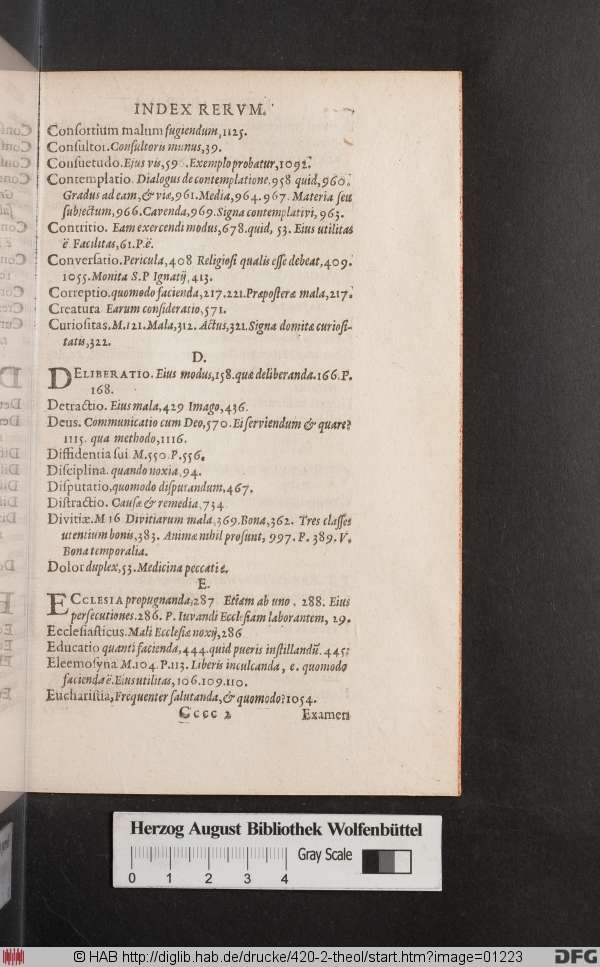 INDEX RERVM.
Conſortium malum fugiendum, 1125.
Conſultor. Conſultoris munus, 39.
Conſuetudo. Ejus vis, 59 . Exemplo probatur, 1092.
Contemplatio. Dialogus de contemplatione, 958 quid, 960.
Gradus ad eam, & viæ, 961. Media, 964. 967. Materia ſeu
ſubjectum, 966. Cavenda, 969. Signa contemplativi, 963.
Contritio. Eam exercendi modus, 678. quid, 53. Eius utilitas
ë Facilitas, 61. P. ë.
Converſatio. Pericula, 408 Religioſi qualis eſſe debeat, 409.
1055. Monita S. P Ignatij, 413.
Correptio. quomodo facienda, 217. 221. Præpoſteræ mala, 217.
Creatura Earum conſideratio, 571.
Curioſitas. M. 121. Mala, 312. Actus, 321. Signa domitæ curioſi-
tatis, 322.
D.
DELIBERATIO. Eius modus, 158. quæ deliberanda. 166. P.
168.
Detractio. Eius mala, 429 Imago, 436.
Deus. Communicatio cum Deo, 570. Ei ſerviendum & quare?
1115. qua methodo, 1116.
Diffidentia ſui M. 550. P. 556.
Diſciplina. quando noxia, 94.
Diſputatio, quomodo diſputandum, 467.
Diſtractio. Cauſæ & remedia, 734
Divitiæ. M 16 Divitiarum mala, 369. Bona, 362. Tres claſſes
utentium bonis, 383. Animæ nihil proſunt, 997. P. 389. V.
Bona temporalia.
Dolor duplex, 53. Medicina peccati e.
E.
ECCLESIA propugnanda, 287 Etiam ab uno . 288. Eius
perſecutiones. 286. P. Iuvandi Eccleſiam laborantem, 29.
Eccleſiaſticus. Mali Eccleſiæ noxij, 286
Educatio quanti facienda, 444. quid pueris inſtillandū. 445.
Eleemoſyna M. 104. P. 113. Liberis inculcanda, e. quomodo
facienda ë. Eius utilitas, 106. 109. 110.
Euchariſtia, Frequenter ſalutanda, & quomodo? 1054.
Cccc 2 Examen
Herzog August Bibliothek Wolfenbüttel
Gray Scale
0 1 2 3 4
© HAB http://diglib.hab.de/drucke/420-2-theol/start.htm?image=01223
DFG